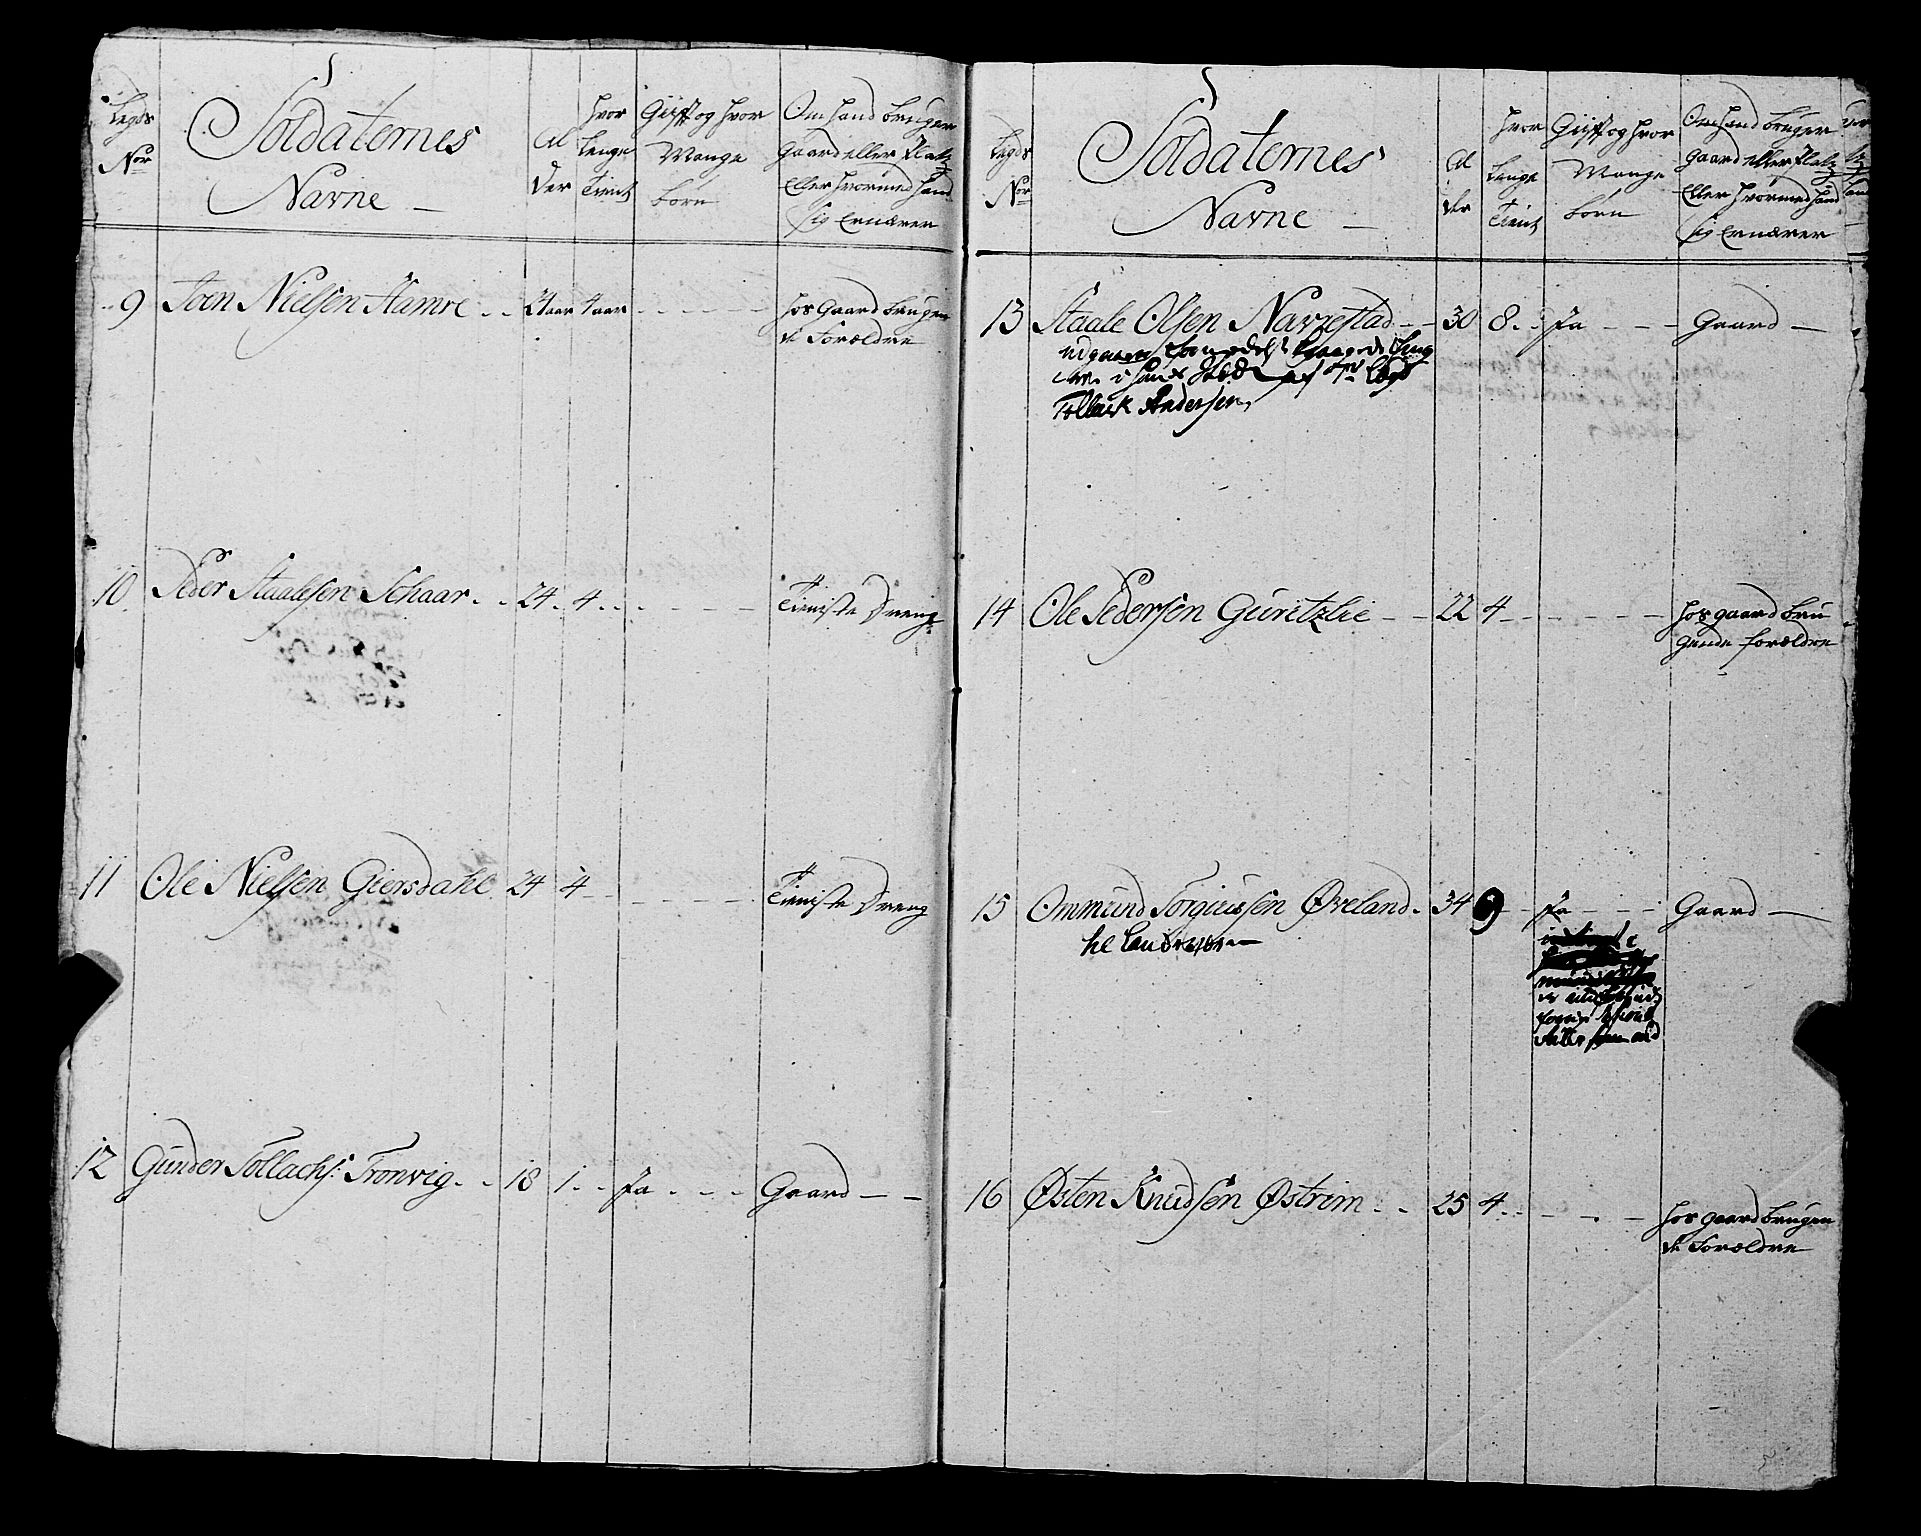 Legds Nor
Soldaternes Navne
Alder
Hvor Lenge Tient
Gift og Hvor Mange Børn
Om Hand Bruger
Gaard eller Platz
Eller Hvormed Hand
Sig Ernærer
9 Joen Nielsen Hamre 24 aar 4 aar Hos Gaard Brugen
de Forældre
10 Peder Staalesen Schaar 24 4 Tieniste Dreng
11 Ole Nielsen Giersdahl 24 4 Tieniste Dreng
12 Gunder Tollachs: Tronvig 18 1 Ja Gaard
Legds Nor
Soldaternes Navne
Alder
Hvor Lenge Tient
Gift og Hvor Mange Børn
Om Hand Bruger
Gaard eller Platz
Eller Hvormed Hand
Sig Ernærer
13 Staale Olsen Navrestad 30 8 Ja Gaard
udgaaen
i Hans Sted af Legd
Tollack Andersen
14 Ole Pedersen Guritzlie 22 4 Hos Gaard Bru
gende Forældre
15 Ommund Torgiussen Øveland 34 9 Ja Gaard
til Landværn
16 Østen Knudsen Østrim 25 4 Hos Gaard Brugen
de Forældre